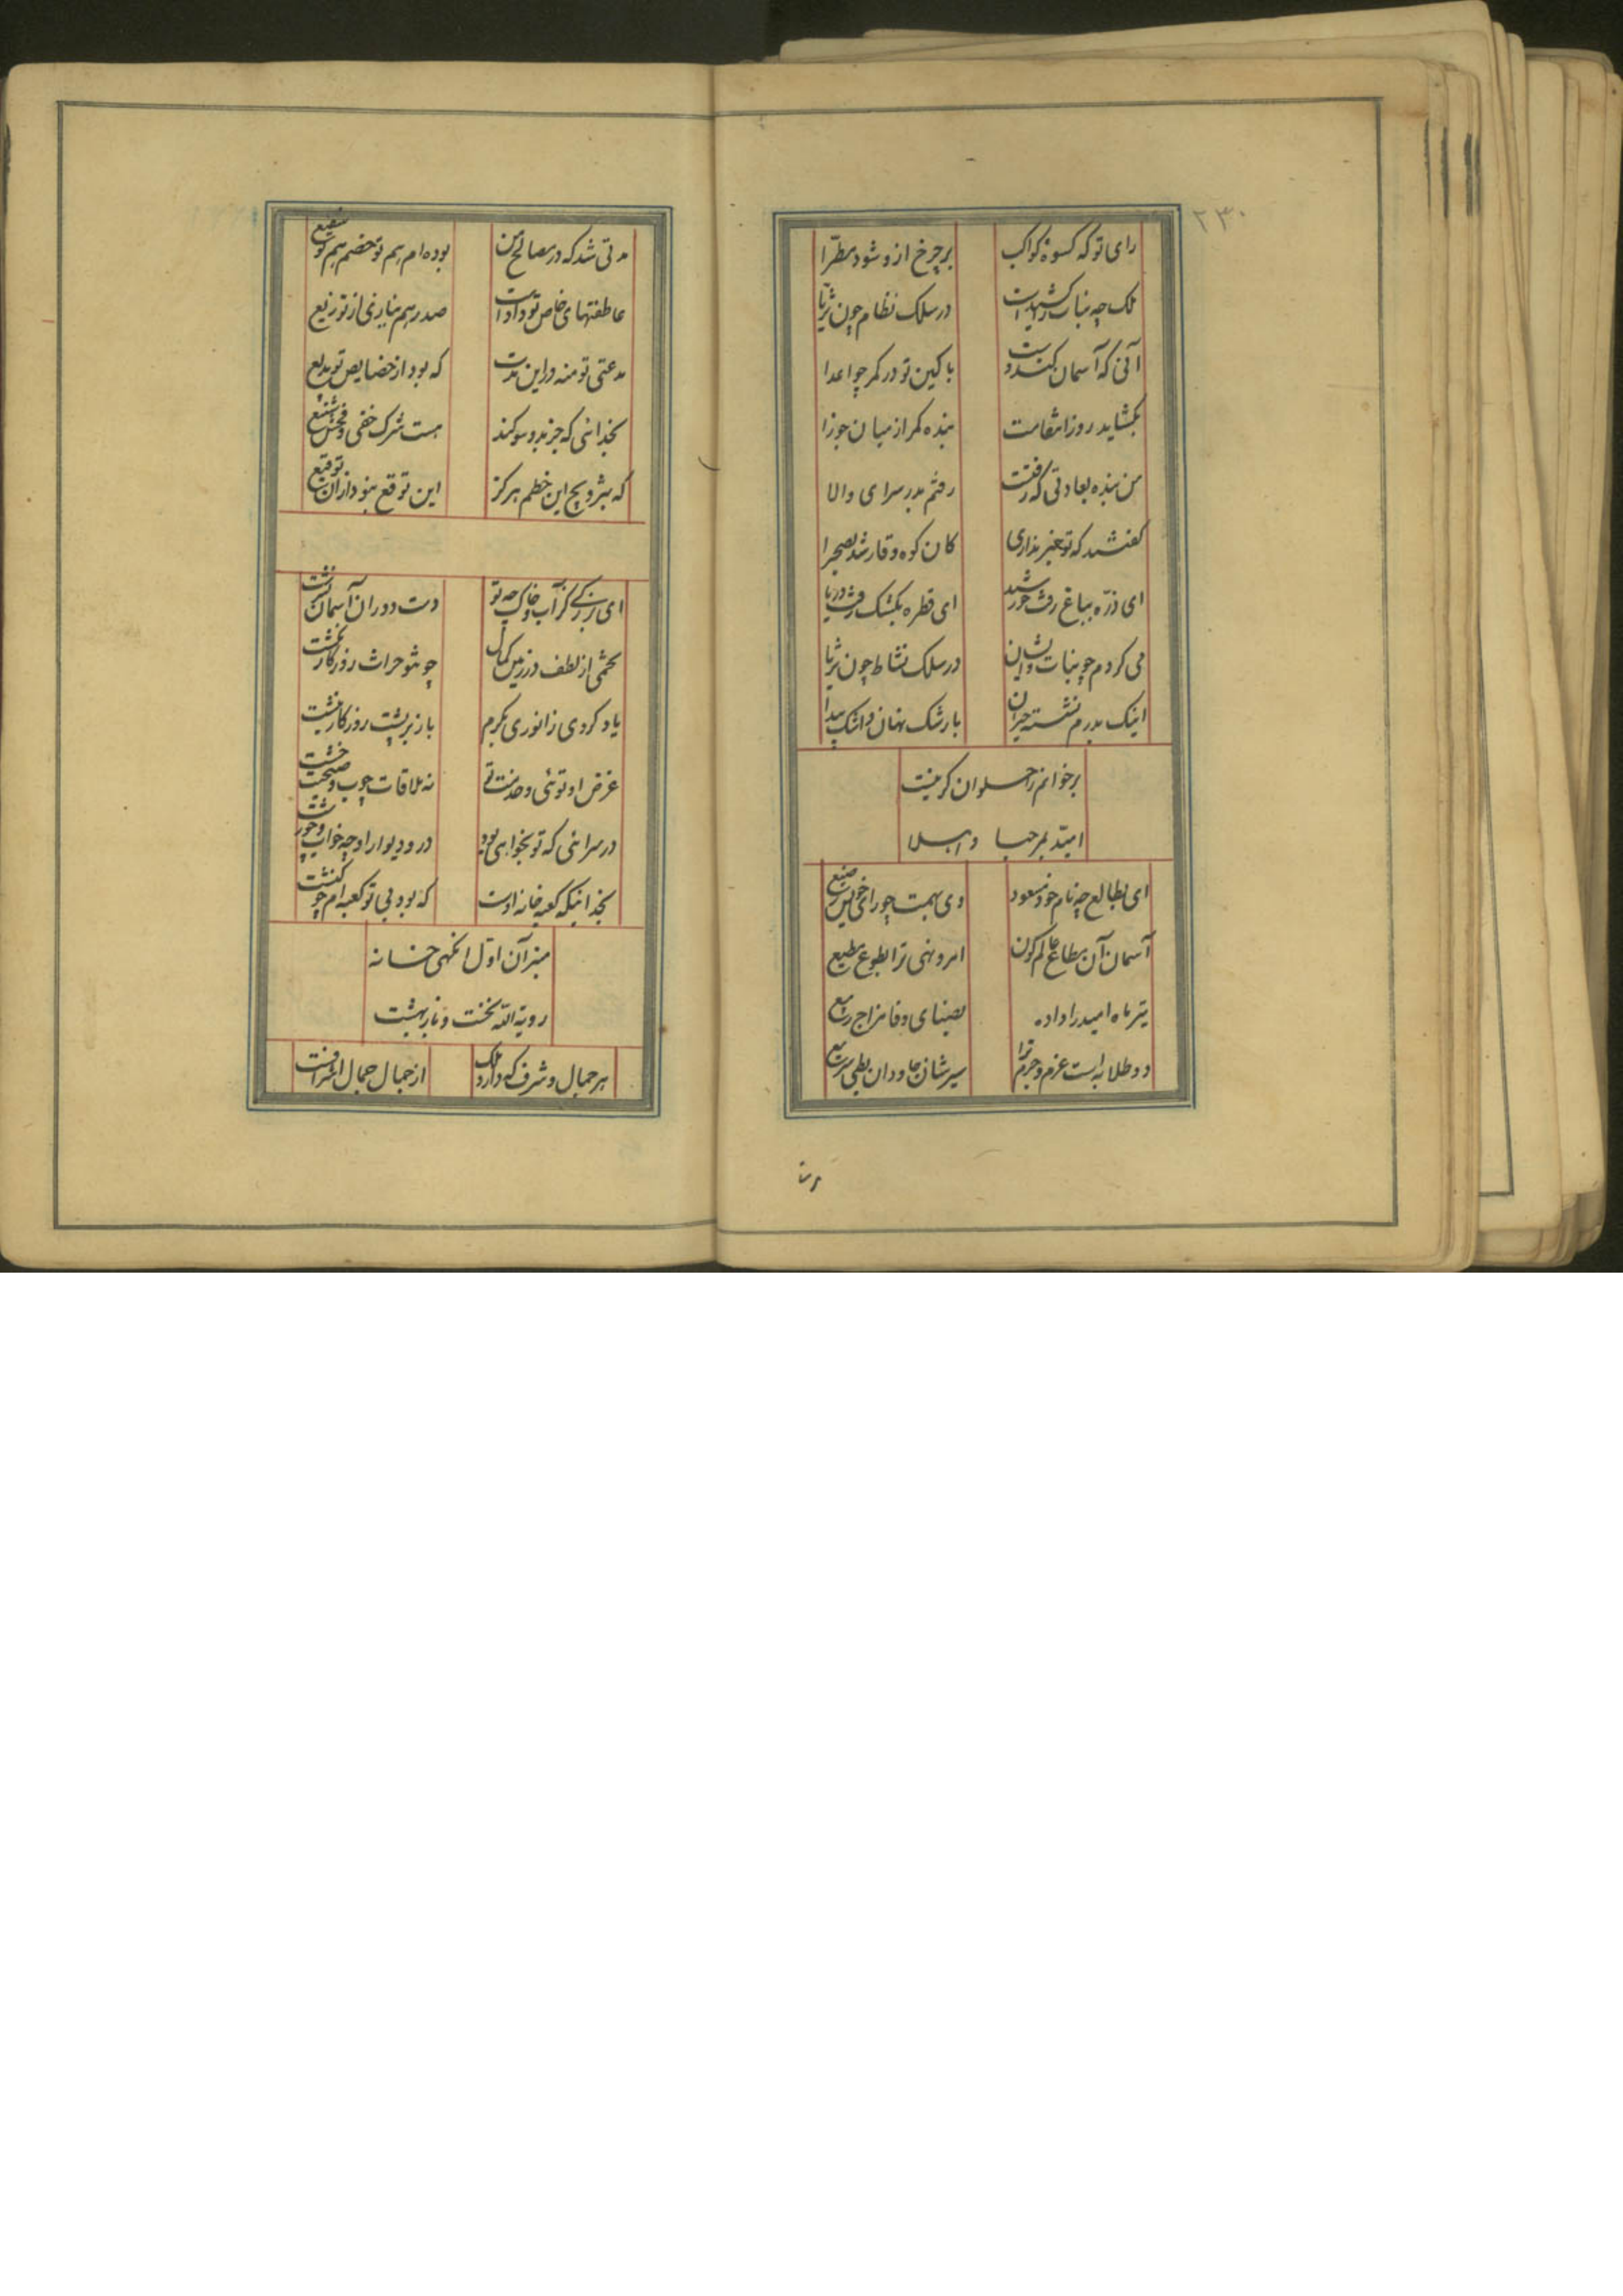 ۲۳۰
رای تو که کسوهٔ کواکب
بر چرخ ازو شود مطرّا
در سلک نظام چون ثریّا
آنی که آسمان
با کین تو در کمر چو اعدا
بگشاید روز انتقامت
بنده کمر از میان جوزا
من بنده بعادتی که رفتست
رفتم بدر سرای والا
گفتند که تو خبر نداری
کان کوه وقار شد بصحرا
ای ذرّه بباغ رفت خورشید
ای قطره بکشک رفت دریا
می کردم چو بنات
در سلک نشاط چون ثریا
اینک بدرم نشسته حیران
با رشک نهان و اشک پیدا
برخوانم زحسلوان کر نیست
امیّد بمرحبا واهلا
ای بطالع چو نام خود مسعود
وی بهمت چو رای خویش رفیع
آسمان آن مطاع عالم کون
امر و نهی ترا بطوع مطیع
تیر ماه امید را داده
بصبای وفا مزاج ربیع
دو طلایه است عزم و حزم ترا
سیرشان جاودان بطی و سریع
مدتی شد که در مصالح من
بوده ام هم تو خصم هم تو شفیع
عاطفتهای خاص تو دادست
صد رهم بنابری از توزیع
مدعتی تو منه در این مدت
که بود از خصایص تو بدیع
بخدائی که جز بدو سوکند
هست شرک خفی و فحش شنیع
که بشرویج این خطم هرکز
این توقع نبود از آن توقیع
ای بزرگی کز آب و خاک چو تو
دست دوران آسمان نسرشت
تخمی از لطف در زمین کمال
چو تو حراث روزگار نکشت
یاد کردی ز انوری بکرم
باز بر پشت روزگار نبشت
غرض او توئی و خدمت تو
نه ملاقات چوب و صحبت خشت
در سرائی که تو بخواهی بود
در و دیوار او چه خوب و چه زشت
بخدائیکه کعبه خانه اوست
که بود بی تو کعبه ام چو کنشت
منزل آن اول آنگهی خانه
رویة الله نخست و باز بهشت
هر جمال و شرف که دارد ملک
از جمال جمال اشراقست